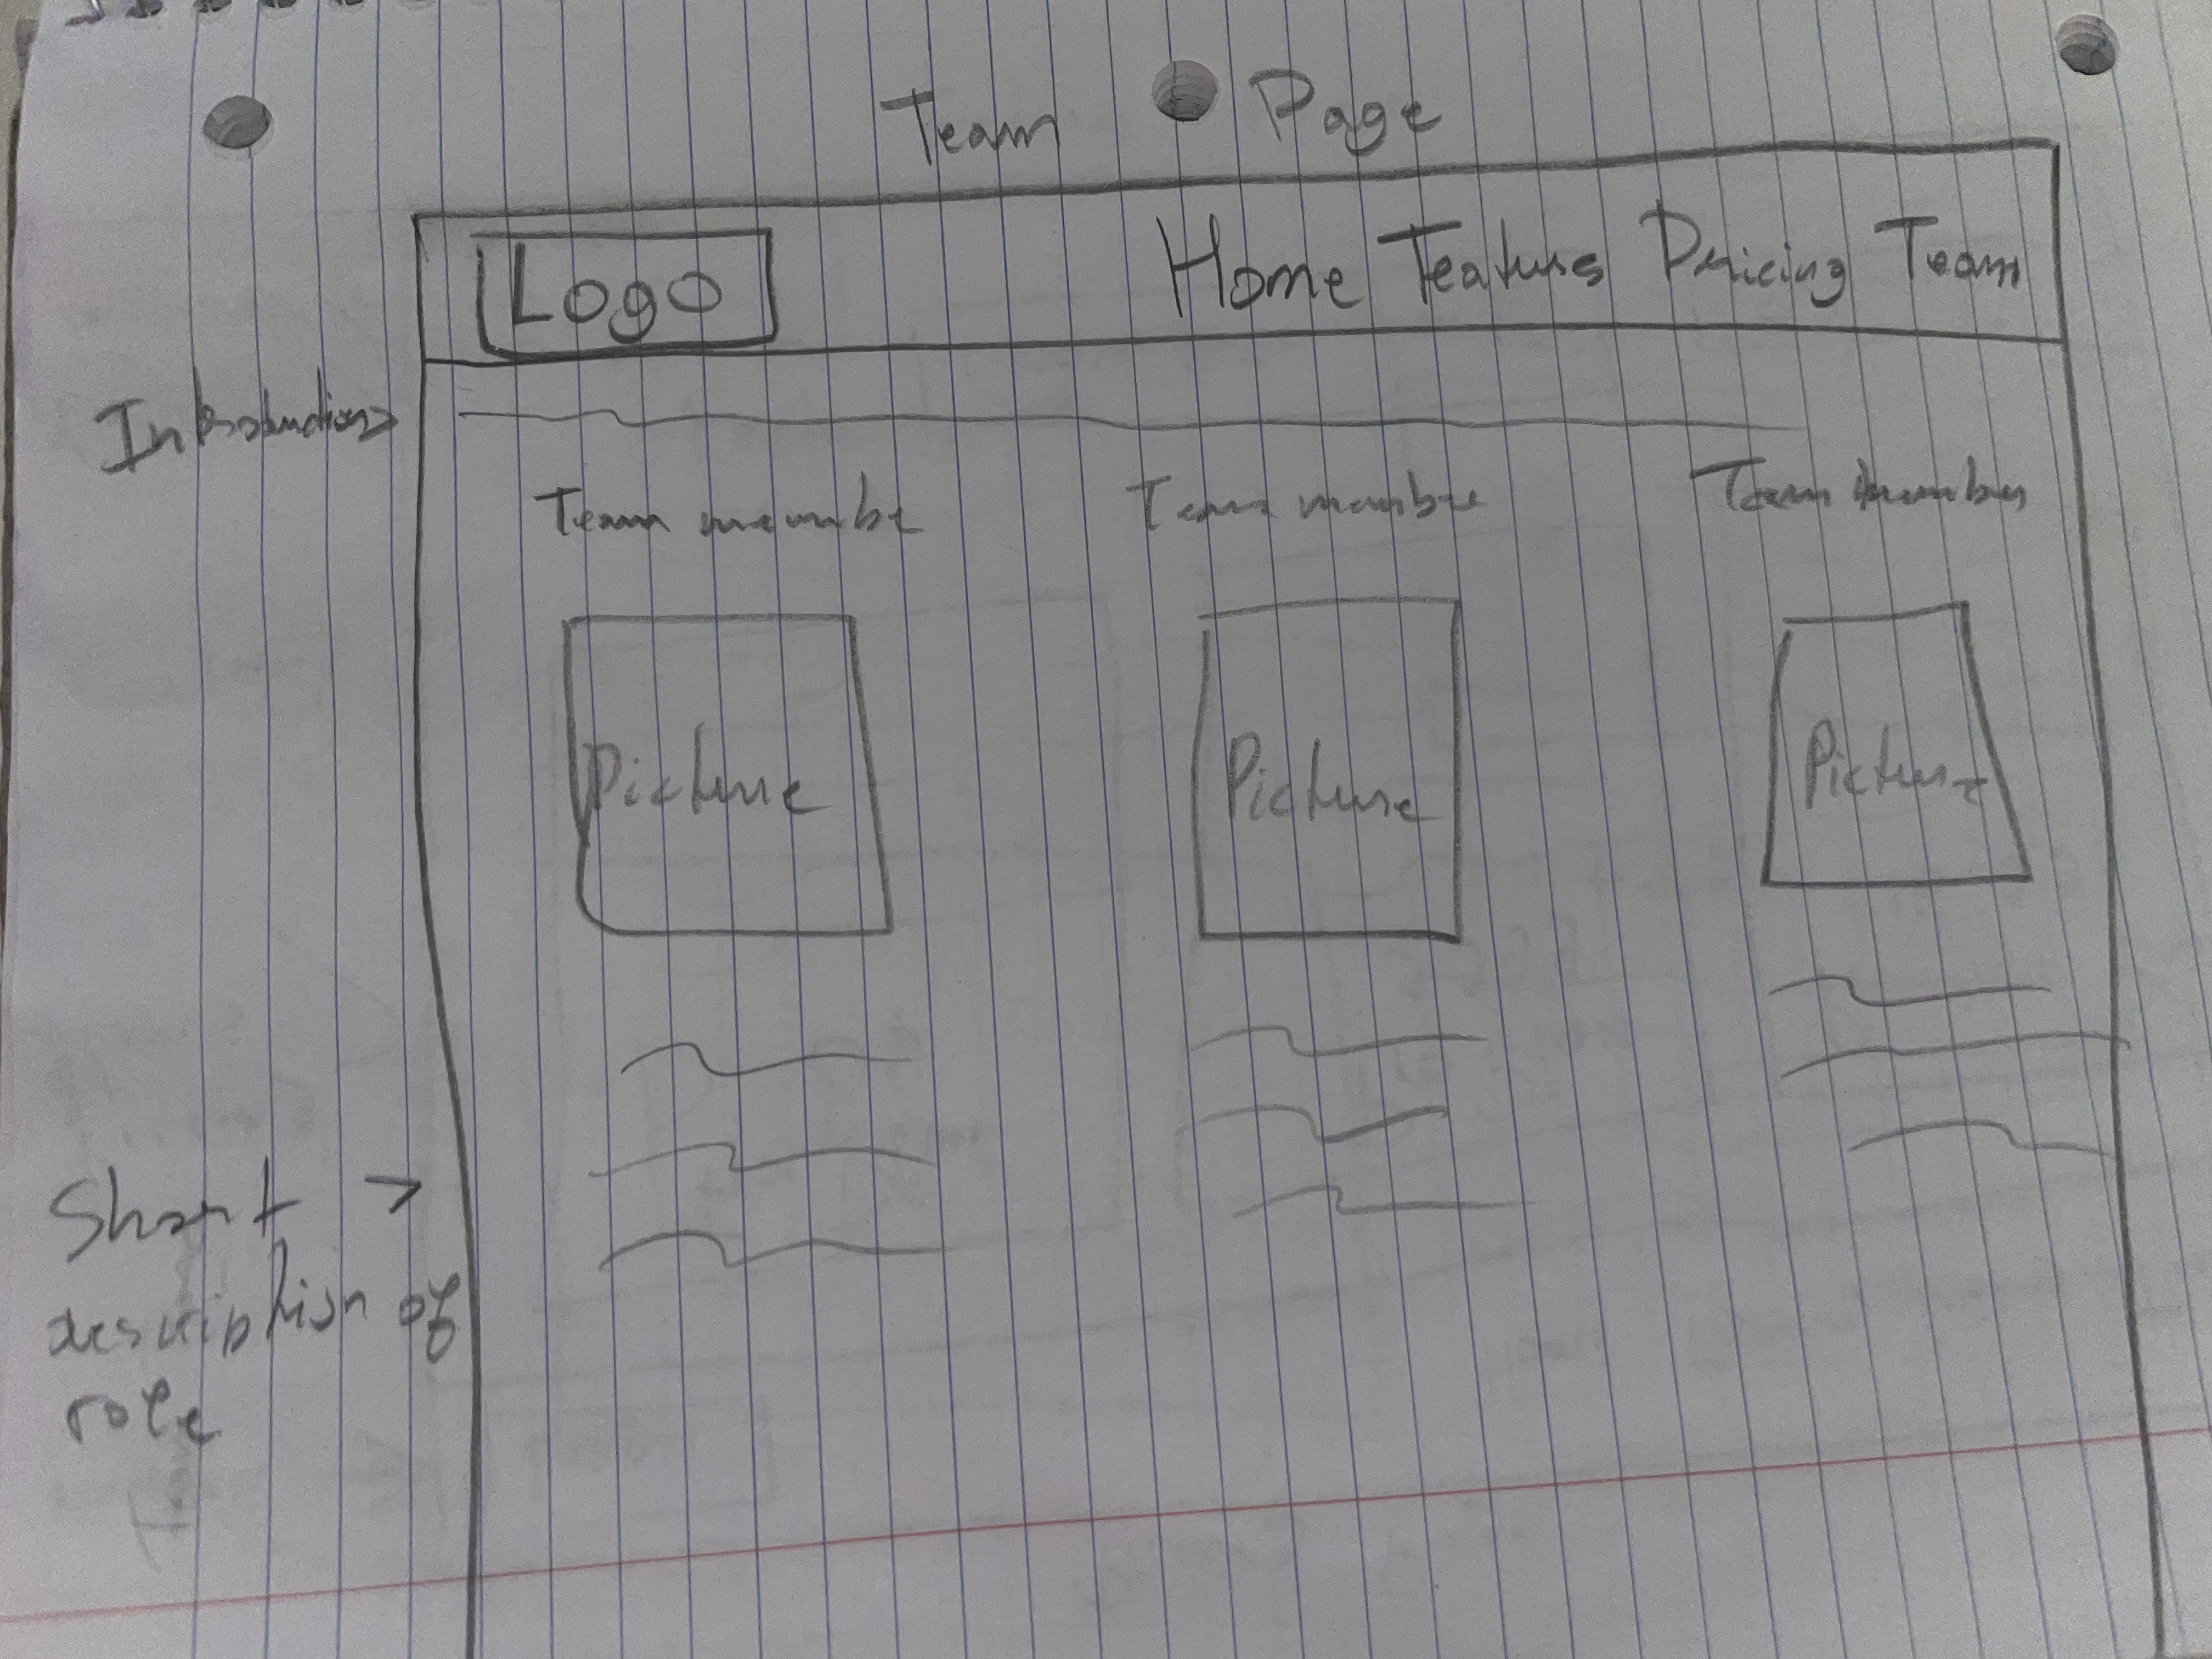 Team Page
Logo Home Featurs Pricing Team
Introduction>
Team membe Team membe Team member
Picture Picture Picture
Short >
description of
role